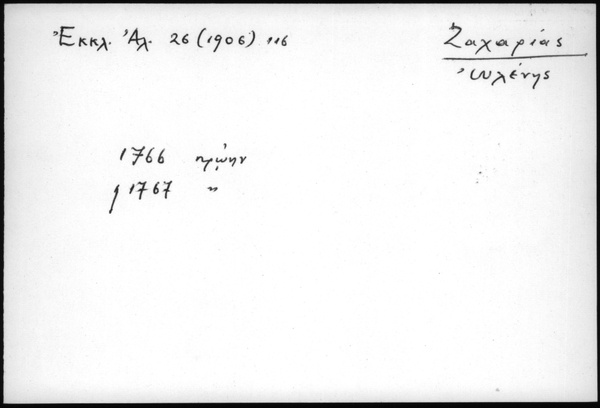 Ἐκκλ. Ἀλ. 26 (1906) 116
Ζαχαρίας
Ὠλένης
1766 πρώην
1767 "